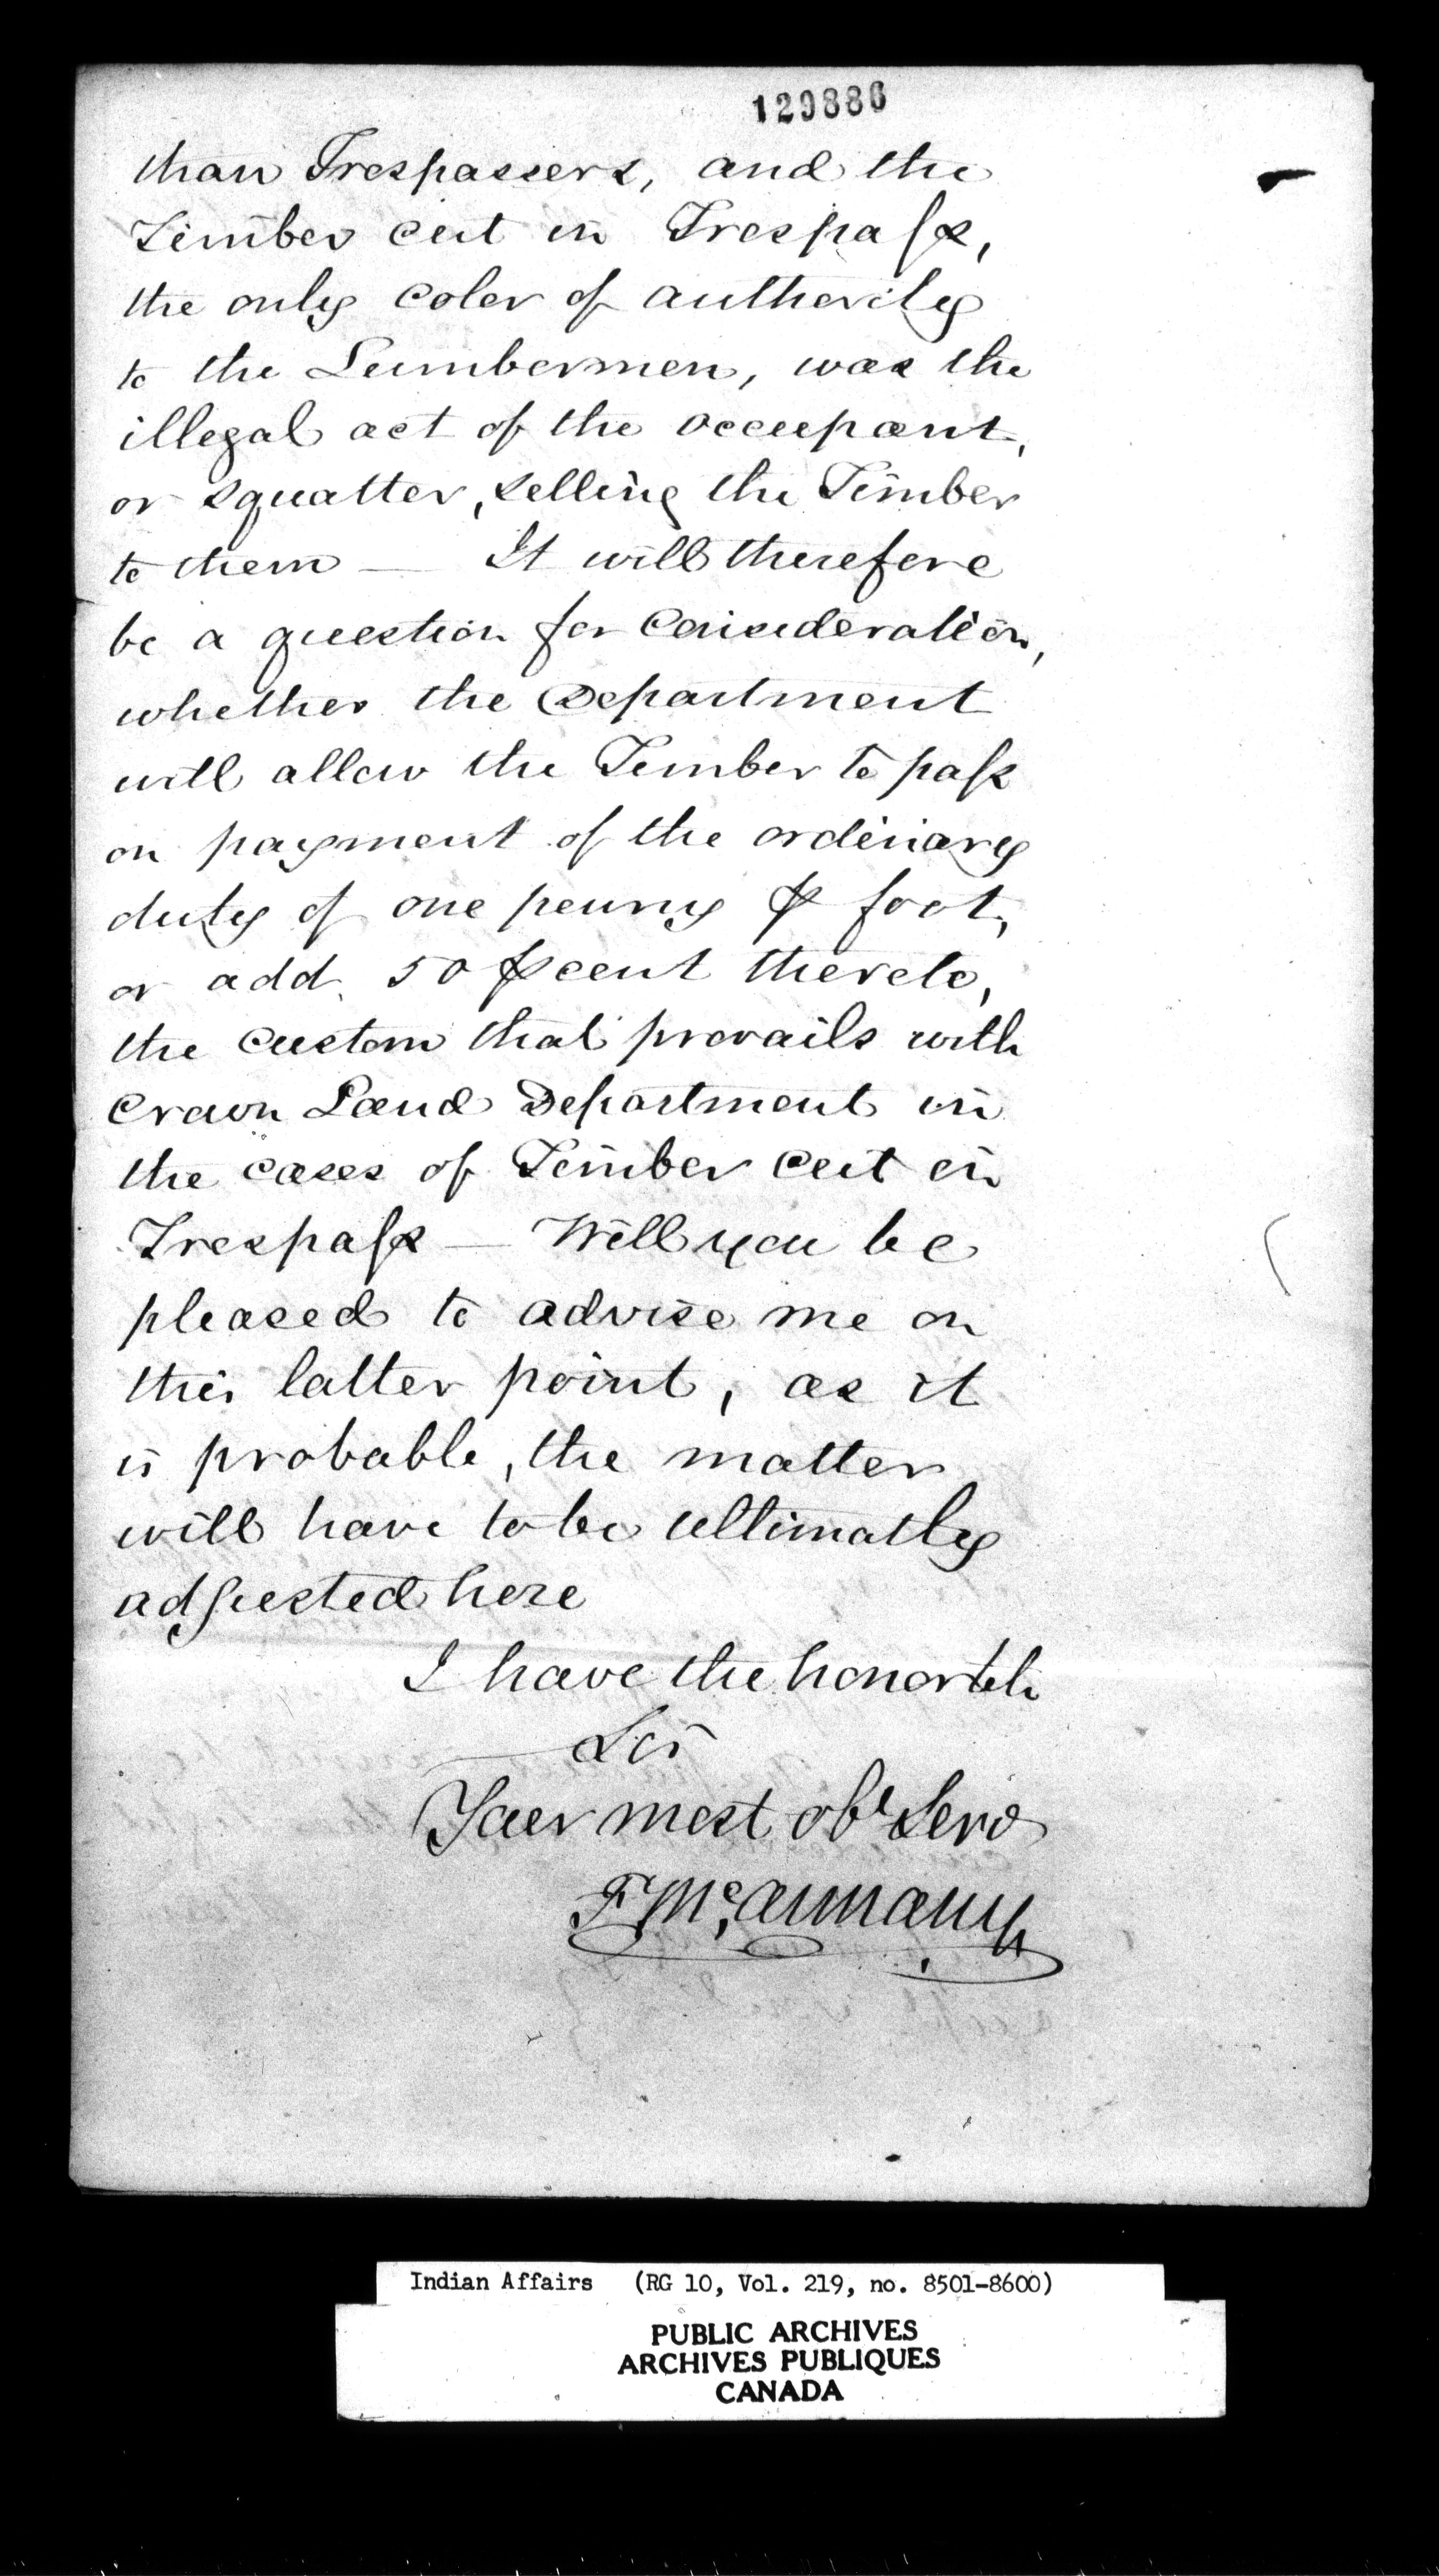 129886
than Trespassers, and the
Timber cut in Trespass,
the only color of authority
to the Lumbermen, was the
illegal act of the occupant,
or squatter, selling the Timber
to them — It will therefore
be a question for consideration,
whether the Department
will allow the Timber to pass
on payment of the ordinary
duty of one penny ⅌ foot,
or add 50 ⅌ cent thereto,
the custom that prevails with
Crown Land Department in
the cases of Timber cut in
Trespass — Will you be
pleased to advise me on
this latter point, as it
is probable, the matter
will have to be ultimatly
adjusted here
I have the honor to be
Sir
Your most obt Serv
F McAnnany
Indian Affairs (RG 10, Vol. 219, no. 8501-8600)
PUBLIC ARCHIVES
ARCHIVES PUBLIQUES
CANADA